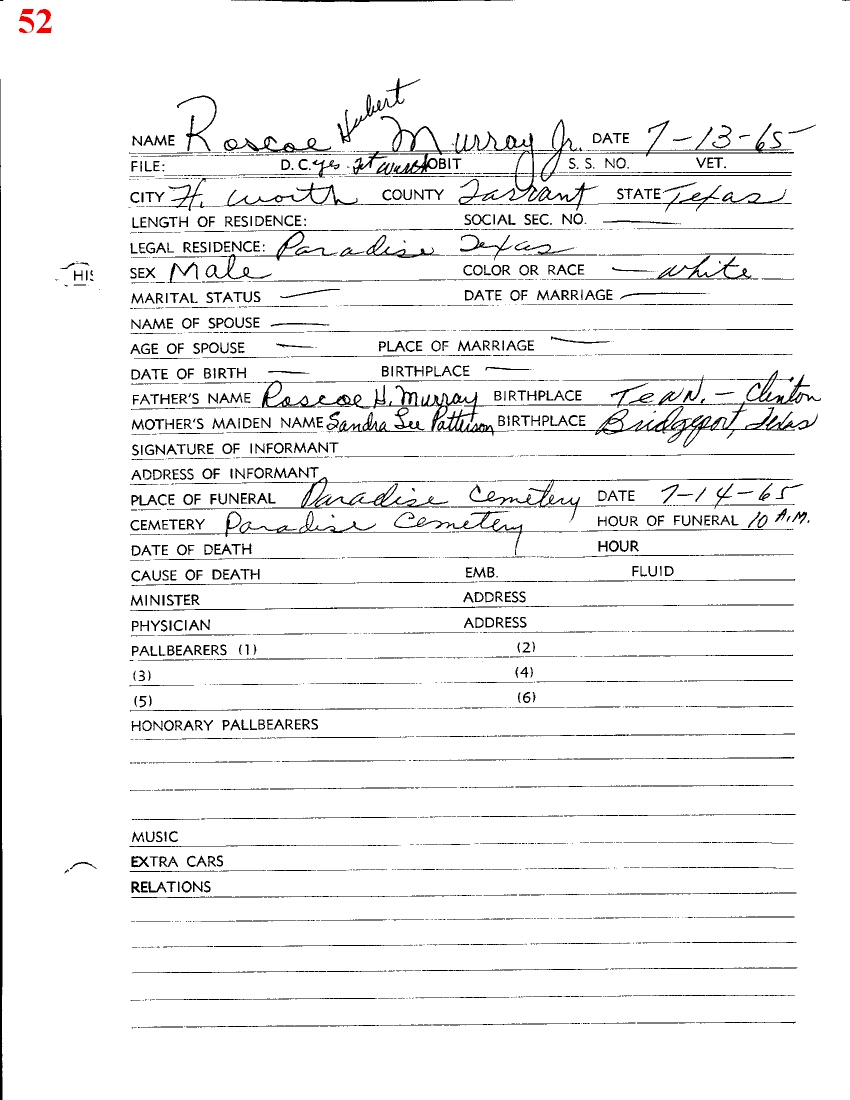 52
Hubert
NAME Roscoe Murray Jr. DATE 7-13-65
FILE: D.C. yes - Ft Worth OBIT S. S. NO. VET.
CITY Ft. Worth COUNTY Tarrant STATE Texas
LENGTH OF RESIDENCE: SOCIAL SEC. NO. —
LEGAL RESIDENCE: Paradise Texas
HIS SEX Male COLOR OR RACE — white
MARITAL STATUS — DATE OF MARRIAGE —
NAME OF SPOUSE —
AGE OF SPOUSE — PLACE OF MARRIAGE —
DATE OF BIRTH — BIRTHPLACE —
FATHER'S NAME Roscoe H. Murray BIRTHPLACE Tenn. - Clinton
MOTHER'S MAIDEN NAME Sandra Lee Patterson BIRTHPLACE Bridgeport, Texas
SIGNATURE OF INFORMANT
ADDRESS OF INFORMANT
PLACE OF FUNERAL Paradise Cemetery DATE 7-14-65
CEMETERY Paradise Cemetery HOUR OF FUNERAL 10 A.M.
DATE OF DEATH HOUR
CAUSE OF DEATH EMB. FLUID
MINISTER ADDRESS
PHYSICIAN ADDRESS
PALLBEARERS (1) (2)
(3) (4)
(5) (6)
HONORARY PALLBEARERS
MUSIC
EXTRA CARS
RELATIONS